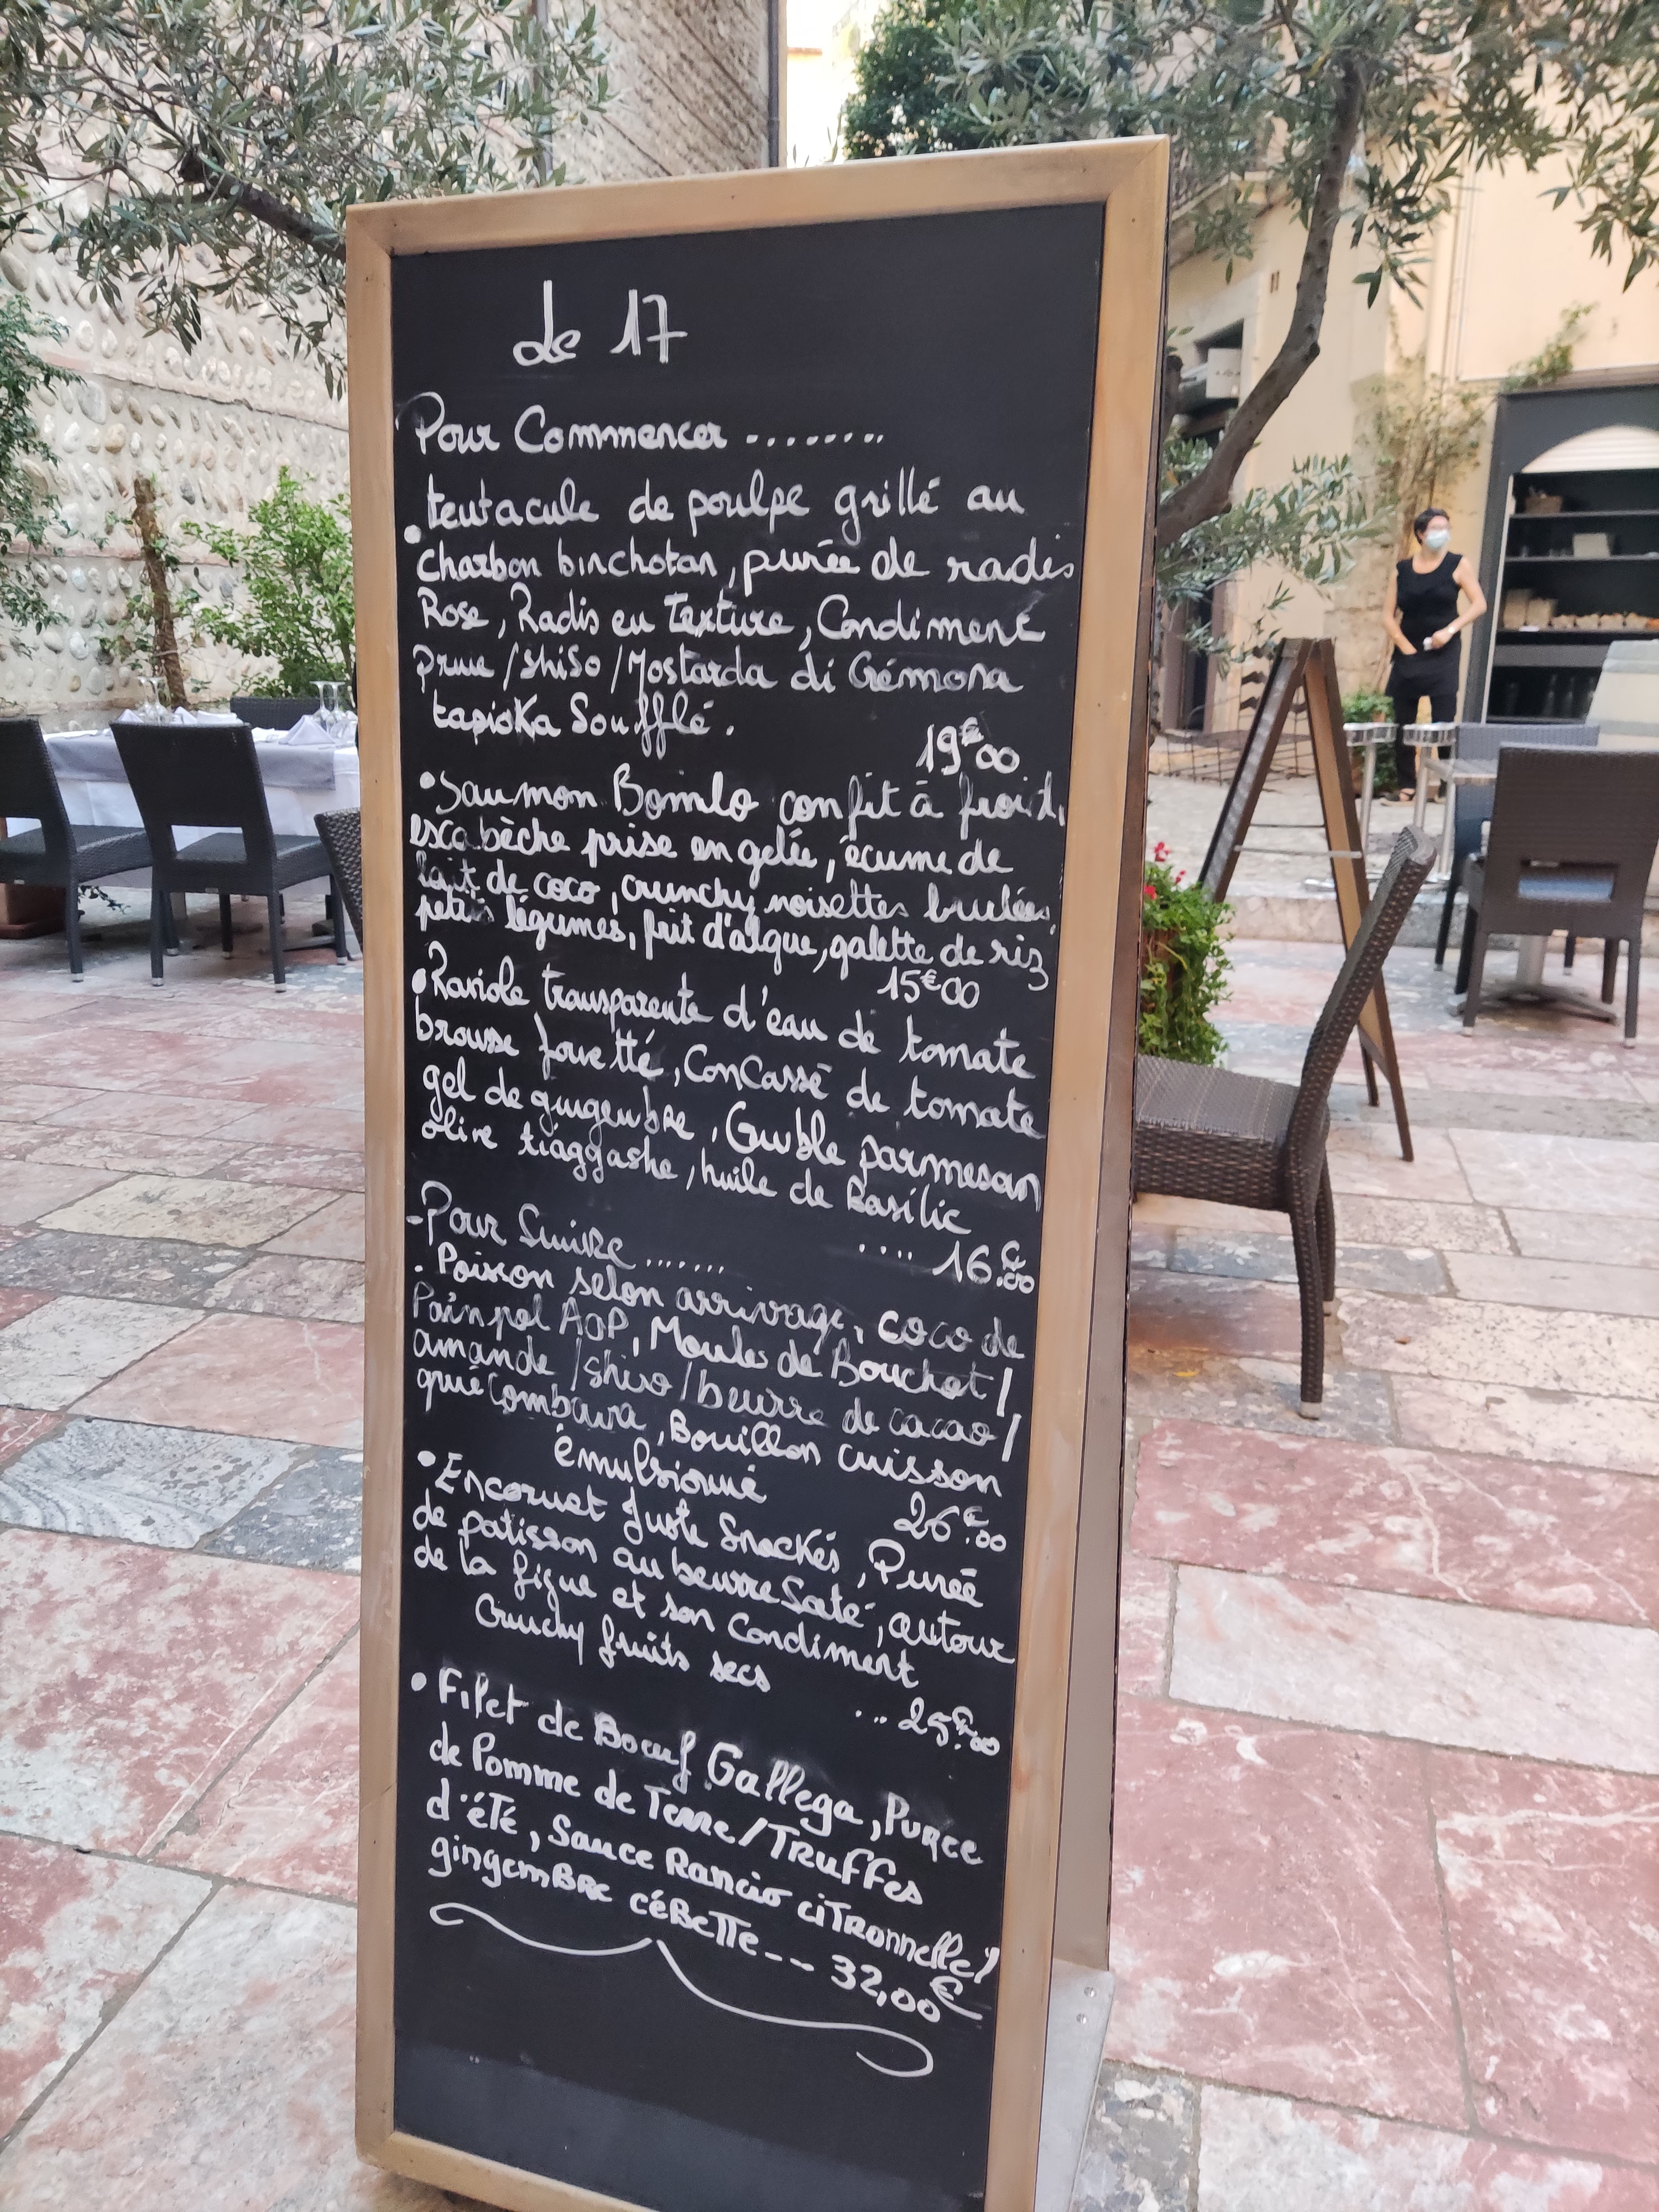 Le 17
Pour Commencer ........
• tentacule de poulpe grillé au
charbon binchotan, purée de radis
Rose, Radis en Texture, Condiment
prune / shiso / Mostarda di Crémona
tapioKa Soufflé.
19€00
• Saumon Bomlo confit à froid,
escabèche prise en gelée, écume de
lait de coco, crunchy noisettes brulées,
petits légumes, fruit d'algue, galette de riz
15€00
• Raviole transparente d'eau de tomate
brousse fouetté, ConCassé de tomate
gel de gingembre, Crumble parmesan
olive tiaggashe, huile de Basilic
.... 16.€00
- Pour Suivre .......
. Poisson selon arrivage, coco de
Paimpol AOP, Moules de Bouchot /
amande / shiso / beurre de cacao /
gruéCombava, Bouillon cuisson
émulsionné
26€.00
• Encornet Juste SnacKés, Purée
de patisson au beurre Saté, autour
de la figue et son Condiment
Crunchy fruits secs
... 25€.00
• Filet de Boeuf Gallega, Puree
de Pomme de Terre / Truffes
d'éTé, Sauce Rancio ciTRonnelle /
gingemBRe céBeTTe -- 32,00€